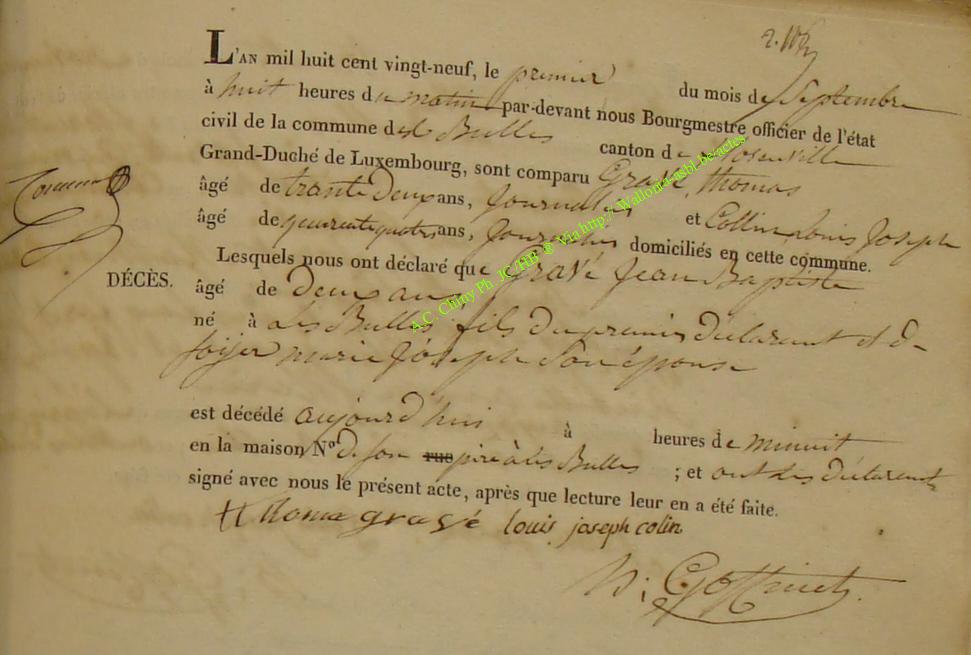 L'AN mil huit cent vingt-neuf, le premier du mois de Septembre
à huit heures du matin par-devant nous Bourgmestre officier de l'état
civil de la commune des Bulles canton de
Grand-Duché de Luxembourg, sont comparu Gravé Thomas
âgé de trante Deux ans, Journalier et Collin Louis Joseph
âgé de ans, domiciliés en cette commune.
DÉCÈS.
Lesquels nous ont déclaré que Gravé Jean Baptiste
âgé de Deux ans
né à Les Bulles fils du premier déclarant et de
marie Joseph Son épouse
est décédé aujourd'hui à heures de minuit
en la maison Nº de son rue père à les Bulles ; et ont les déclarent
signé avec nous le présent acte, après que lecture leur en a été faite.
thoma gravé louis joseph colin
A.C. Chiny Ph. JC/HB ® Via http://Wallonia-asbl.be/actes